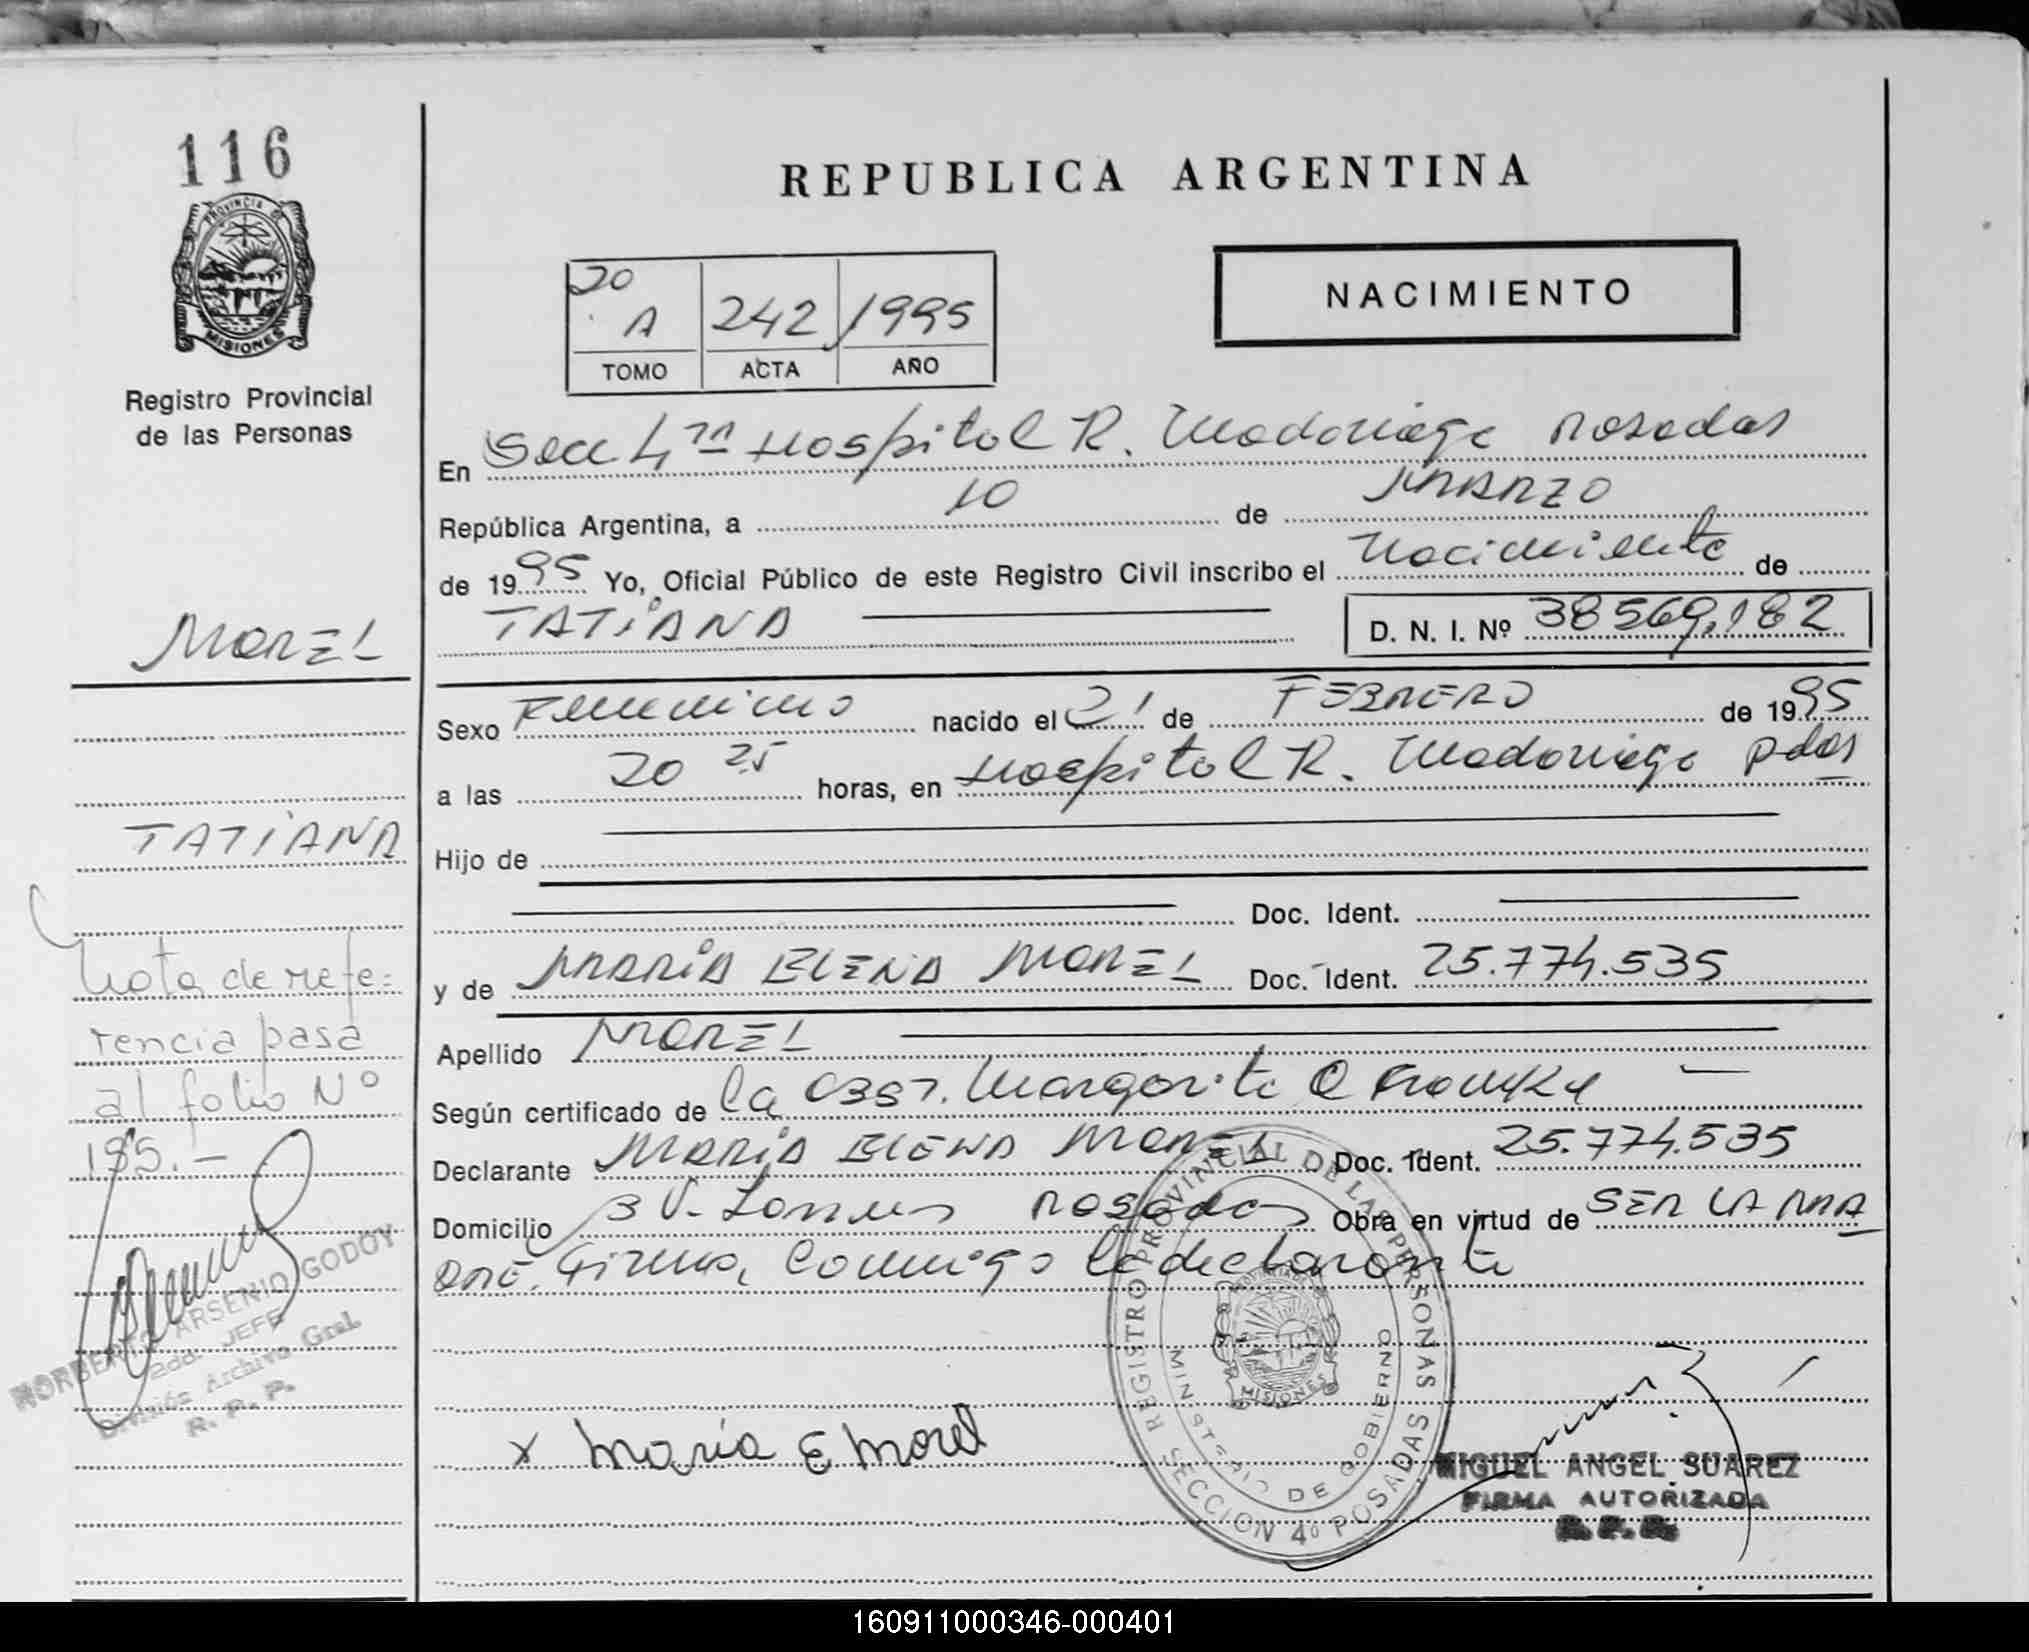 116
PROVINCIA DE
MISIONES
Registro Provincial
de las Personas
REPUBLICA ARGENTINA
20
A 242 1995
TOMO ACTA AÑO
NACIMIENTO
En Secc 4ta Hospital R. Madariaga Posadas
República Argentina, a 10 de MARZO
de 1995 Yo, Oficial Público de este Registro Civil inscribo el Nacimiento de
TATIANA D. N. I. Nº 38569,182
MOREL
TATIANA
Sexo Femenino nacido el 21 de FEBRERO de 1995
a las 20 25 horas, en Hospital R. Madariaga Pdas
Hijo de
Doc. Ident.
y de MARÍA ELENA MOREL Doc. Ident. 25.774.535
Apellido MOREL
Según certificado de la OBST. Margarita
Declarante MARÍA ELENA MOREL Doc. Ident. 25.774.535
Domicilio Posadas Obra en virtud de SER LA MA
DRE. Firma Conmigo la declarante
Nota de refe=
rencia pasa
al folio Nº
195.-
NORBERTO ARSENIO GODOY
2do. JEFE
División Archivo Gral.
R. P. P.
x María E Morel
REGISTRO PROVINCIAL DE LAS PERSONAS
MINISTERIO DE GOBIERNO
MISIONES
SECCION 4º POSADAS
MIGUEL ANGEL SUAREZ
FIRMA AUTORIZADA
R. P. P.
160911000346-000401